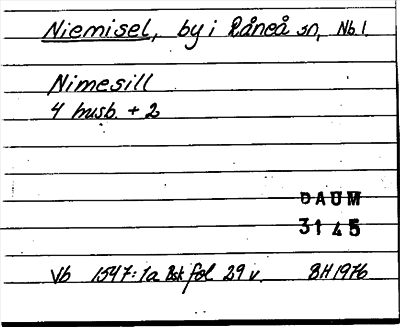 Niemisel, by i Råneå sn, Nb l.
Nimesill
4 husb. + 2
DAUM
3145
Vb 1547:1a Bsk fol 29 v. BH 1976